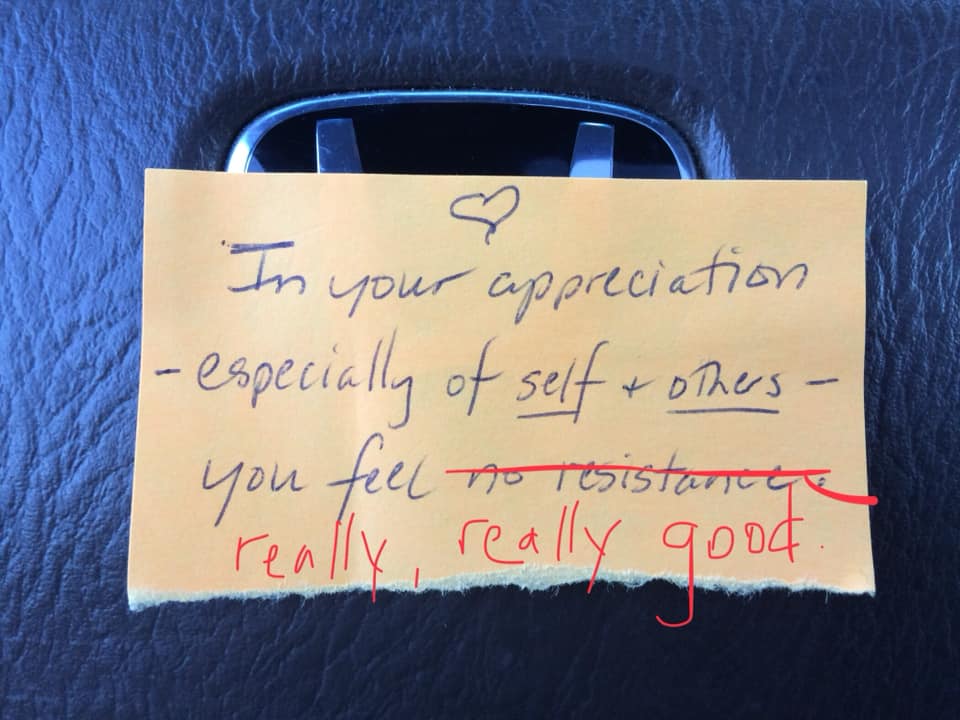 In your appreciation
-especially of self + others-
you feel no resistance.
really, really good.